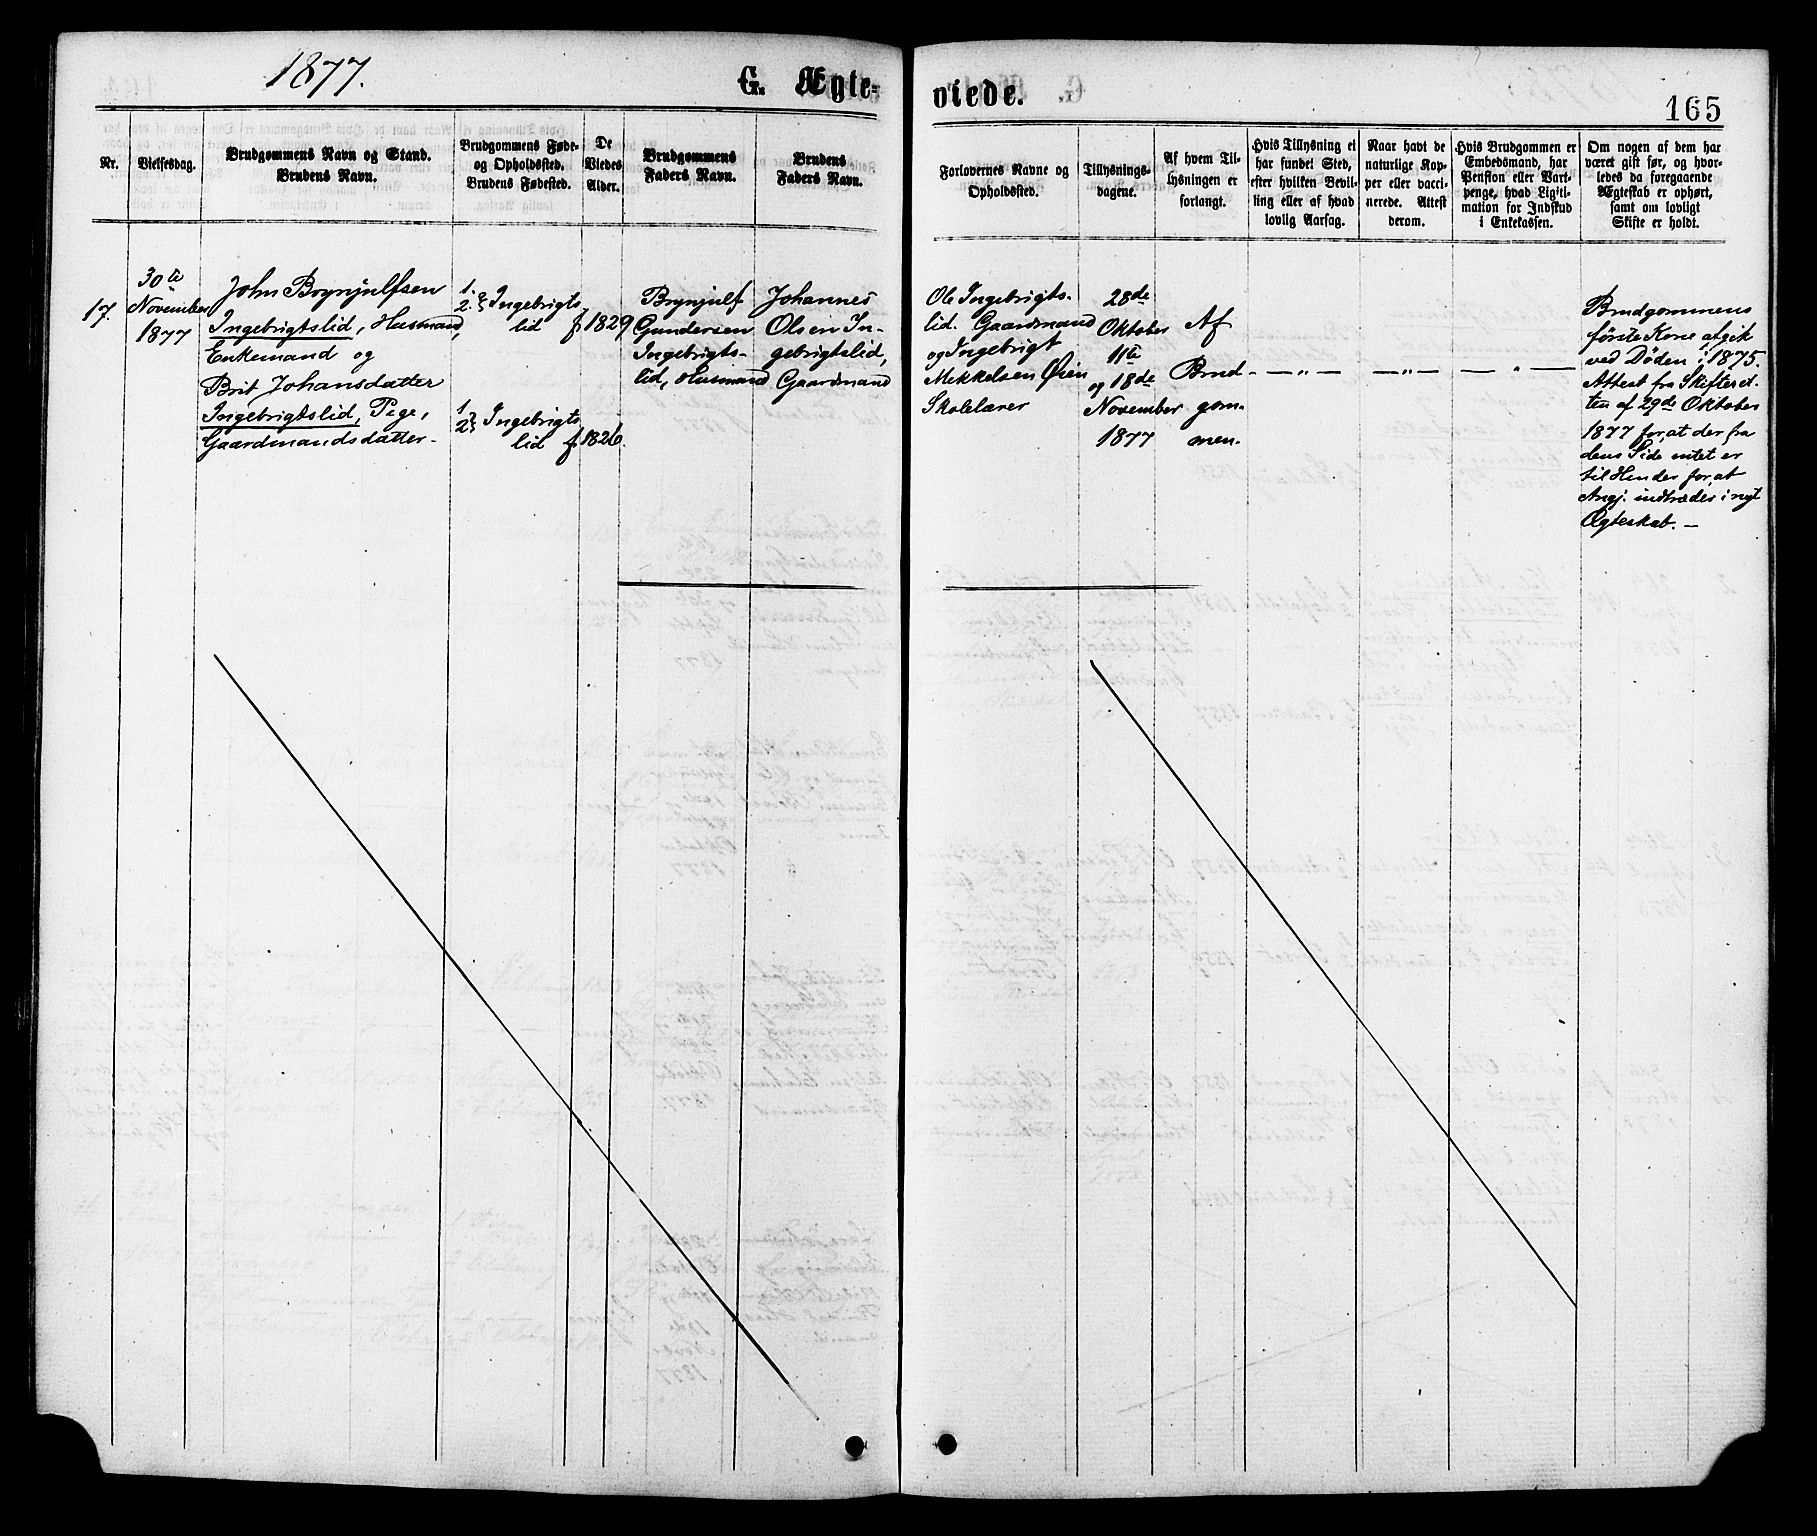 1877.
G. Ægte-
viede.
165
Nr.
Vielsesdag.
Brudgommens Navn og Stand.
Brudens Navn.
Brudgommens Føde-
og Opholdssted.
Brudens Fødested.
De
Viedes
Alder.
Brudgommens
Faders Navn.
Brudens
Faders Navn.
Forlovernes Navne og
Opholdssted.
Tillysnings-
dagene.
Af hvem Til-
lysningen er
forlangt.
Hvis Tillysning ei
har fundet Sted,
efter hvilken Bevil-
ling eller af hvad
lovlig Aarsag.
Naar havt de
naturlige Kop-
per eller vacci-
nerede. Attest
derom.
Hvis Brudgommen er
Embedsmand, har
Pension eller Vart-
penge, hvad Ligiti-
mation for Indskud
i Enkekassen.
Om nogen af dem har
været gift før, og hvor-
ledes da foregaaende
Ægteskab er ophørt,
samt om lovligt
Skifte er holdt.
17.
30te
November
1877
John Brynjulfsen
Ingebrigtslid, Husmand,
Enkemand og
Brit Johansdatter
Ingebrigtslid, Pige,
Gaardmandsdatter-
1.
2. Ingebrigts
lid
f 1829
1.
2. Ingebrigts
lid
f 1826.
Brynjulf
Gundersen
Ingebrigts-
lid, Husmand
Johannes
Olsen In-
gebrigtslid,
Gaardmand
Ole Ingebrigts-
lid. Gaardmand
og Ingebrigt
Mekkelsen Øien
Skolelærer
28de
Oktober
11te
og 18de
November
1877
Af
Brud-
gom-
men.
— „ —
— „ —
— „ —
Brudgommens
første Kone afgik
ved Døden i 1875.
Attest fra Skifteret-
ten af 29de Oktober
1877 for, at der fra
dens Side intet er
til Hinder for, at
Angj. indtræder i nyt
Ægteskab. —